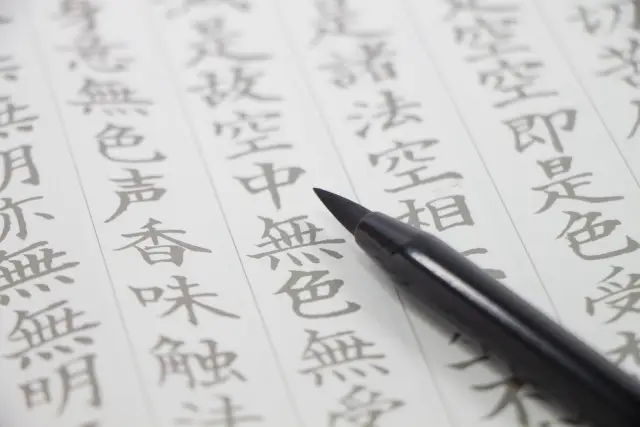 切苦
是空空即是色受
是諸法空相
是故空中無色無受
身意無色声香味触法
無明亦無無明